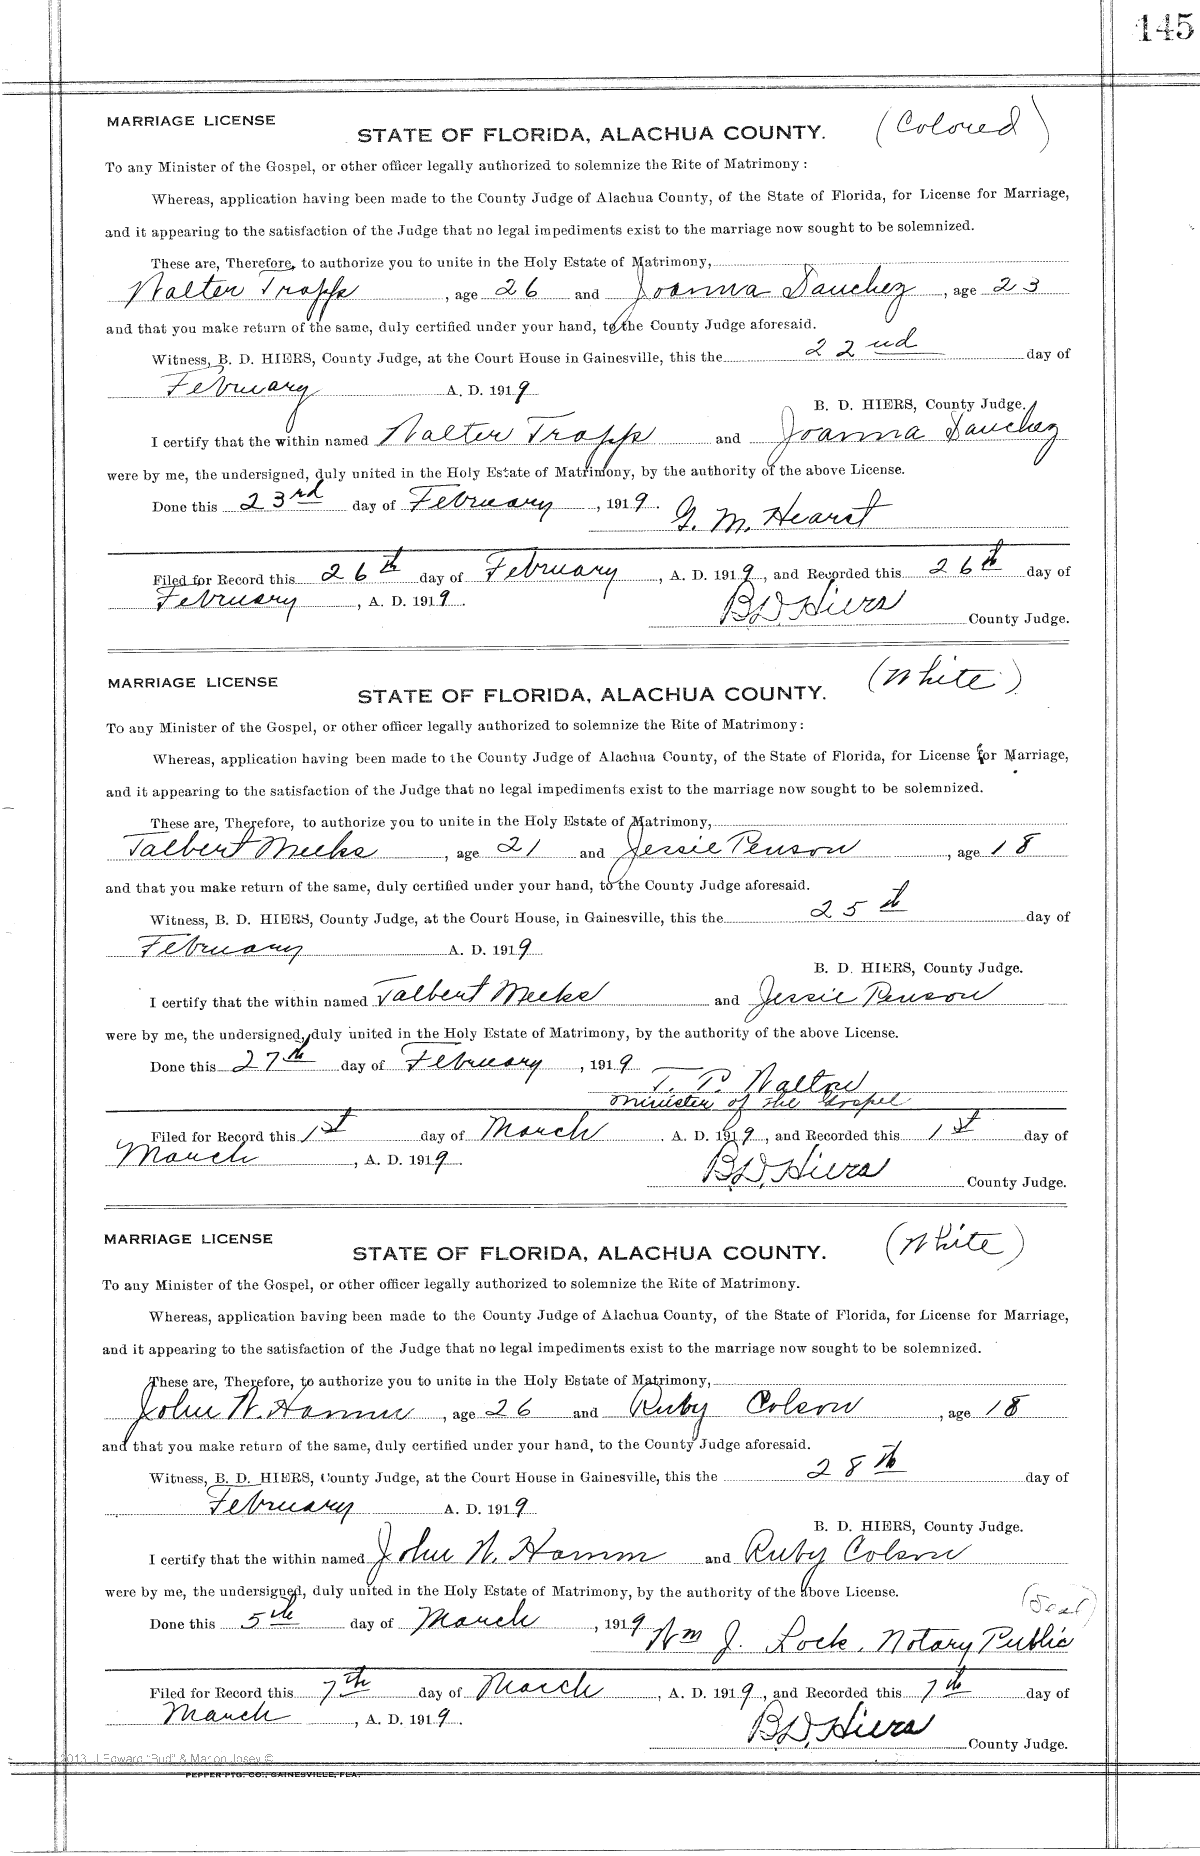 145
MARRIAGE LICENSE
STATE OF FLORIDA, ALACHUA COUNTY. (Colored)
To any Minister of the Gospel, or other officer legally authorized to solemnize the Rite of Matrimony:
Whereas, application having been made to the County Judge of Alachua County, of the State of Florida, for License for Marriage,
and it appearing to the satisfaction of the Judge that no legal impediments exist to the marriage now sought to be solemnized.
These are, Therefore, to authorize you to unite in the Holy Estate of Matrimony,
Walter Trapp, age 26 and Joanna Sanchez, age 23
and that you make return of the same, duly certified under your hand, to the County Judge aforesaid.
Witness, B. D. HIERS, County Judge, at the Court House in Gainesville, this the 22nd day of
February A. D. 1919
B. D. HIERS, County Judge.
I certify that the within named Walter Trapp and Joanna Sanchez
were by me, the undersigned, duly united in the Holy Estate of Matrimony, by the authority of the above License.
Done this 23rd day of February, 1919.
G. M. Hearst
Filed for Record this 26th day of February, A. D. 1919, and Recorded this 26th day of
February, A. D. 1919.
B.D. Hiers County Judge.
MARRIAGE LICENSE
STATE OF FLORIDA, ALACHUA COUNTY. (White)
To any Minister of the Gospel, or other officer legally authorized to solemnize the Rite of Matrimony:
Whereas, application having been made to the County Judge of Alachua County, of the State of Florida, for License for Marriage,
and it appearing to the satisfaction of the Judge that no legal impediments exist to the marriage now sought to be solemnized.
These are, Therefore, to authorize you to unite in the Holy Estate of Matrimony,
Talbert Meeks, age 21 and Jessie Penson, age 18
and that you make return of the same, duly certified under your hand, to the County Judge aforesaid.
Witness, B. D. HIERS, County Judge, at the Court House, in Gainesville, this the 25th day of
February A. D. 1919
B. D. HIERS, County Judge.
I certify that the within named Talbert Meeks and Jessie Penson
were by me, the undersigned, duly united in the Holy Estate of Matrimony, by the authority of the above License.
Done this 27th day of February, 1919
T. P. Walton
Minister of the Gospel
Filed for Record this 1st day of March. A. D. 1919, and Recorded this 1st day of
March, A. D. 1919.
B.D. Hiers County Judge.
MARRIAGE LICENSE
STATE OF FLORIDA, ALACHUA COUNTY. (White)
To any Minister of the Gospel, or other officer legally authorized to solemnize the Rite of Matrimony.
Whereas, application having been made to the County Judge of Alachua County, of the State of Florida, for License for Marriage,
and it appearing to the satisfaction of the Judge that no legal impediments exist to the marriage now sought to be solemnized.
These are, Therefore, to authorize you to unite in the Holy Estate of Matrimony,
John W. Hamm, age 26 and Ruby Colson, age 18
and that you make return of the same, duly certified under your hand, to the County Judge aforesaid.
Witness, B. D. HIERS, County Judge, at the Court House in Gainesville, this the 28th day of
February A. D. 1919
B. D. HIERS, County Judge.
I certify that the within named John W. Hamm and Ruby Colson
were by me, the undersigned, duly united in the Holy Estate of Matrimony, by the authority of the above License.
(Seal)
Done this 5th day of March, 1919
Wm J. Lock, Notary Public
Filed for Record this 7th day of March, A. D. 1919, and Recorded this 7th day of
March, A. D. 1919.
B.D. Hiers County Judge.
2013 J Edward "Bud" & Marion Josey ©
PEPPER PTG. CO., GAINESVILLE, FLA.